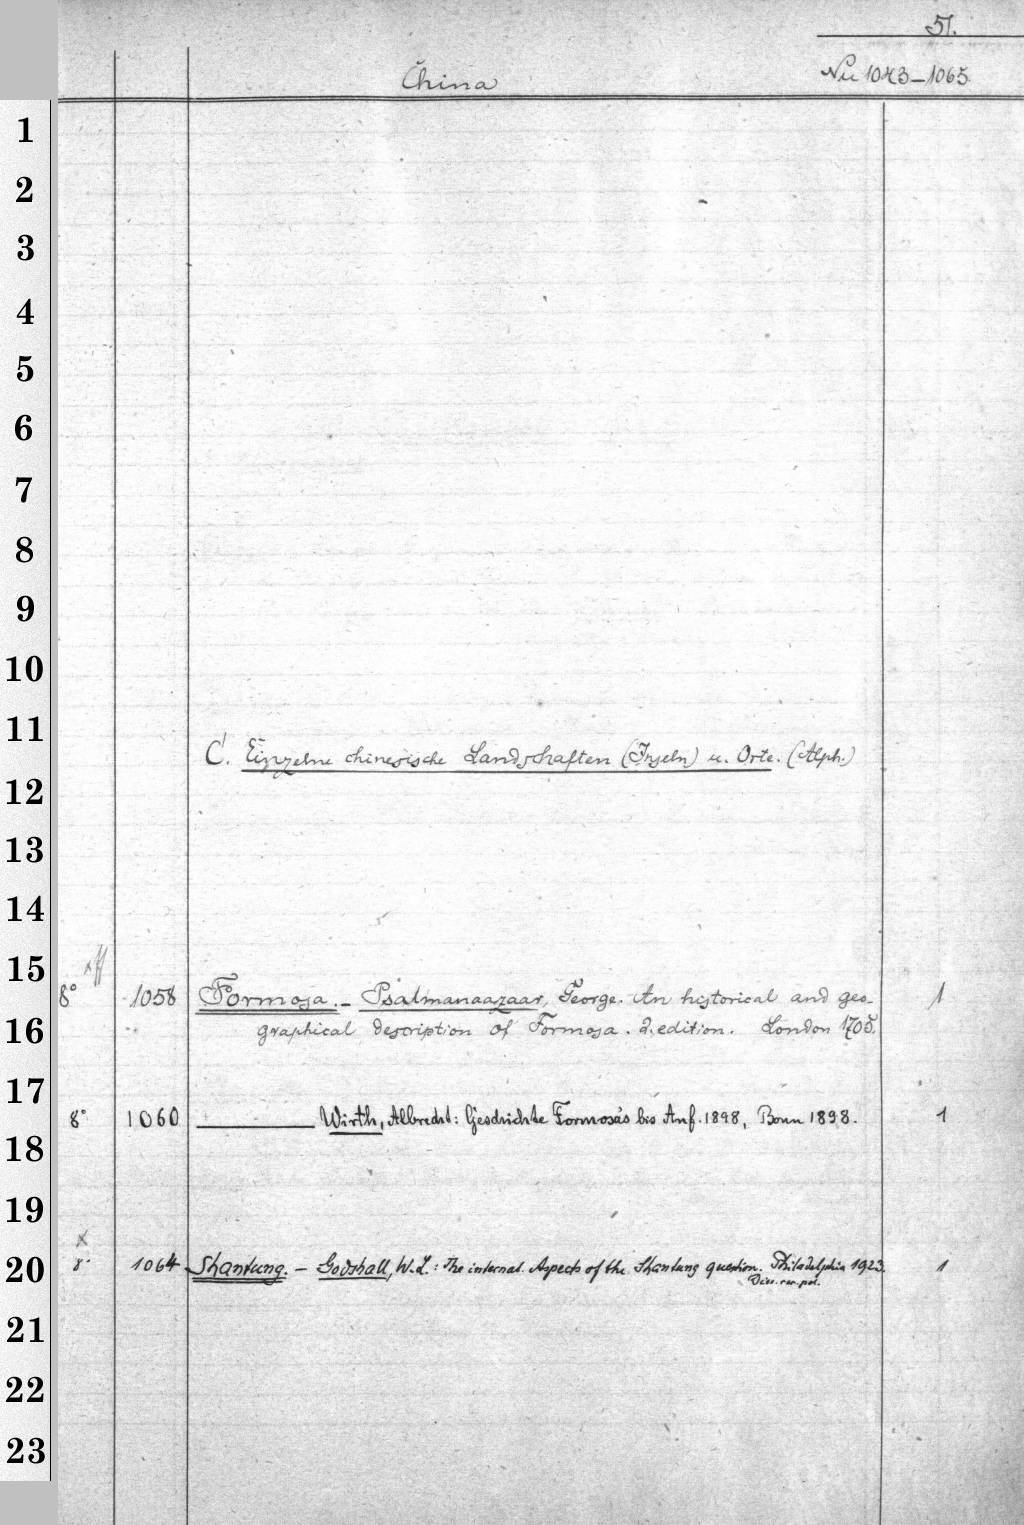 51.
China
Nu 1043-1065
1
2
3
4
5
6
7
8
9
10
11
C. Einzelne chinesische Landschaften (Inseln) u. Orte. (Alph.)
12
13
14
15
8° 1058 Formosa. - Psalmanaazaar, George. An historical and geo- 1
16
graphical description of Formosa. 2. edition. London 1705.
17
8° 1060 Wirth, Albrecht: Geschichte Formosa's bis Anf. 1898, Bonn 1898. 1
18
19
x
20
8° 1064 Shantung. - Godshall, W.L.: The internat. Aspects of the Shantung question. Philadelphia 1923. 1
Diss. rer. pol.
21
22
23